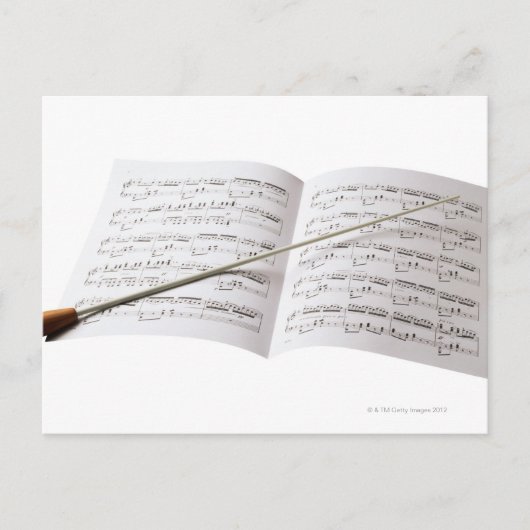 © & TM Getty Images 2012